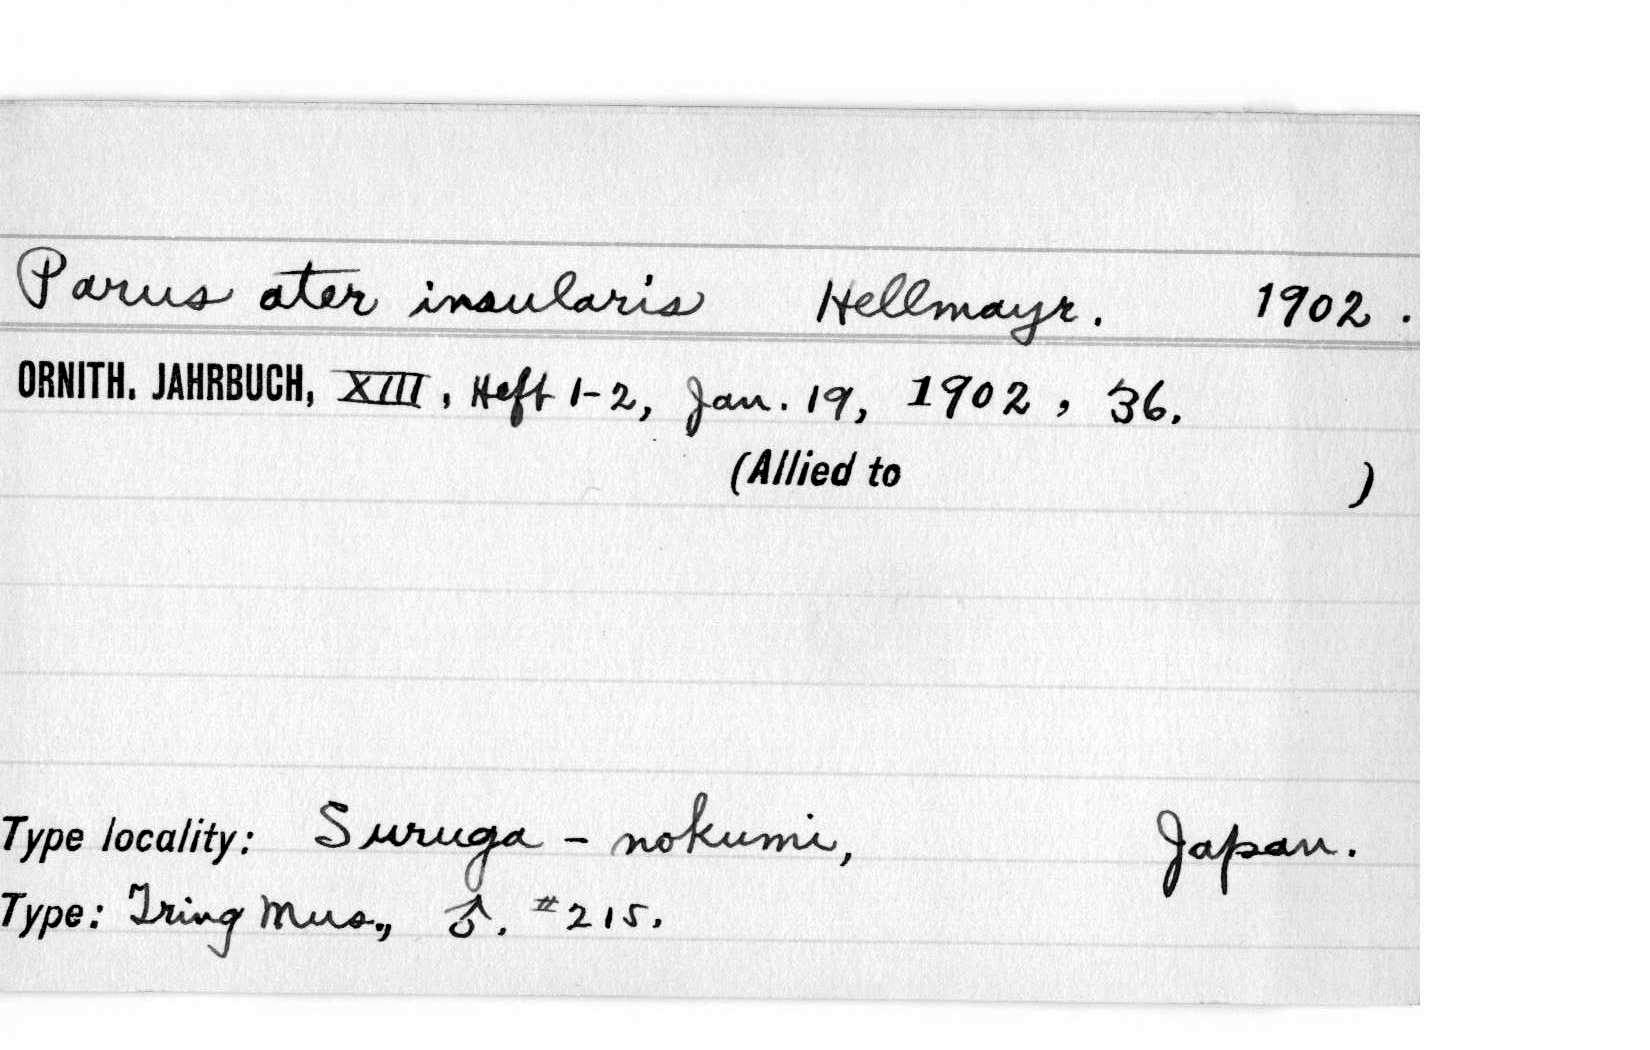 Parus ater insularis Hellmayr. 1902.
ORNITH. JAHRBUCH, XIII, Heft 1-2, Jan. 19, 1902, 36.
(Allied to )
Type locality: Suruga - nokumi, Japan.
Type: Tring Mus., ♂. #215.